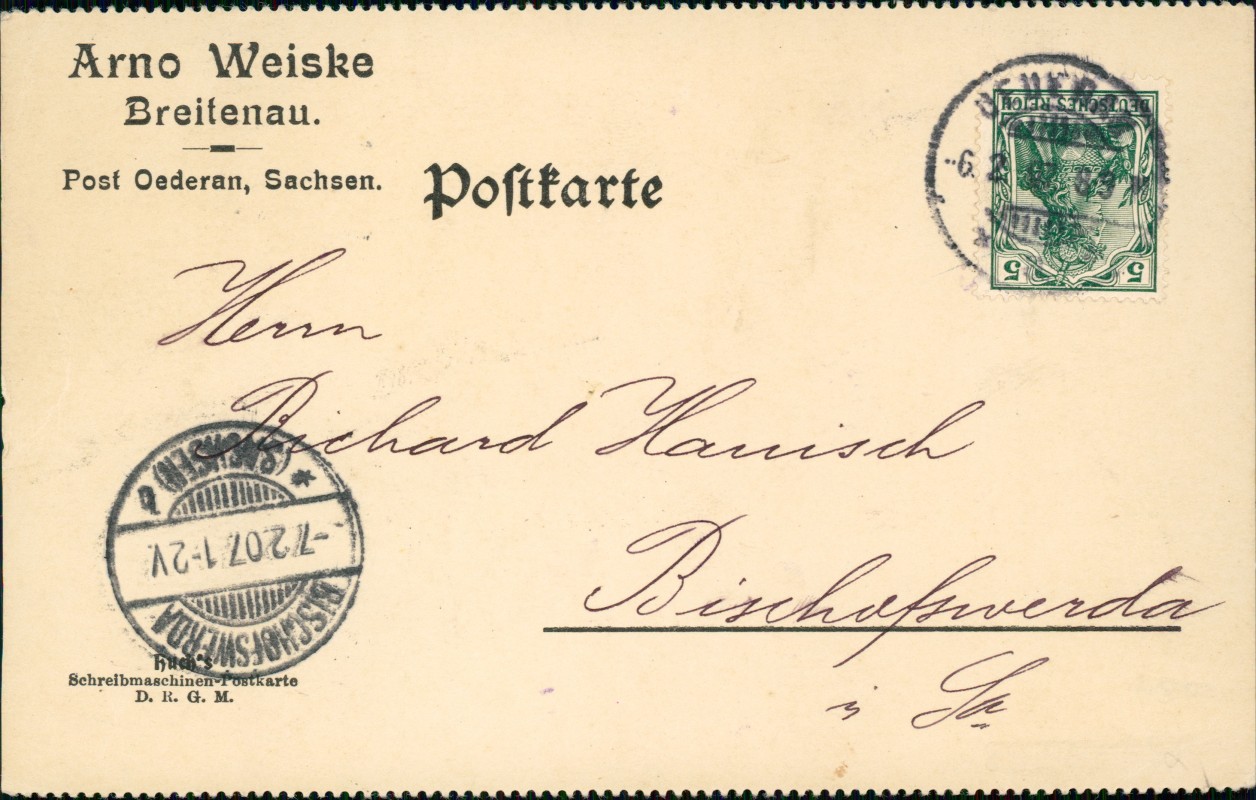 Arno Weiske
Breitenau.
Post Oederan, Sachsen.
Postkarte
DEUTSCHES REICH
5 5
Herrn
Richard Hanisch
Bischofswerda
i Sa
(SACHSEN)
-7.2.07.1-2V.
BISCHOFSWERDA
Schreibmaschinen-Postkarte
D. R. G. M.